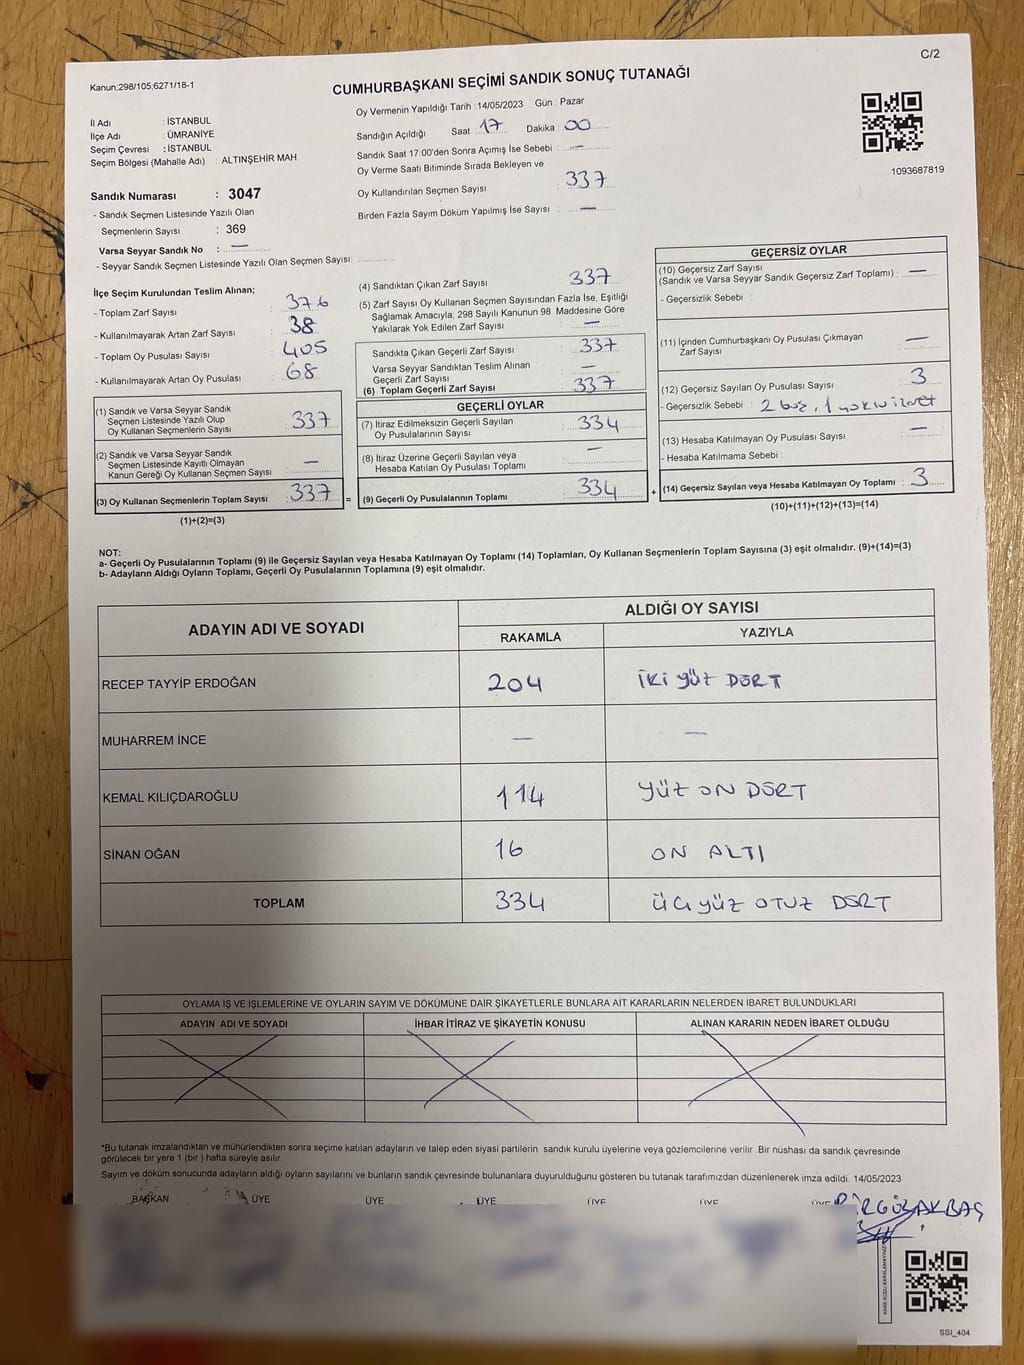 C/2
Kanun;298/105;6271/18-1
CUMHURBAŞKANI SEÇİMİ SANDIK SONUÇ TUTANAĞI
Oy Vermenin Yapıldığı Tarih : 14/05/2023 Gün : Pazar
İl Adı : İSTANBUL
İlçe Adı : ÜMRANİYE
Seçim Çevresi : İSTANBUL
Seçim Bölgesi (Mahalle Adı) : ALTINŞEHİR MAH.
Sandığın Açıldığı Saat : 17 Dakika : 00
Sandık Saat 17:00'den Sonra Açımış İse Sebebi : —
Oy Verme Saati Bitiminde Sırada Bekleyen ve
Oy Kullandırılan Seçmen Sayısı : 337
Birden Fazla Sayım Döküm Yapılmış İse Sayısı : —
1093687819
Sandık Numarası : 3047
- Sandık Seçmen Listesinde Yazılı Olan
Seçmenlerin Sayısı : 369
Varsa Seyyar Sandık No : —
- Seyyar Sandık Seçmen Listesinde Yazılı Olan Seçmen Sayısı:
İlçe Seçim Kurulundan Teslim Alınan;
- Toplam Zarf Sayısı : 376
- Kullanılmayarak Artan Zarf Sayısı : 38
- Toplam Oy Pusulası Sayısı : 405
- Kullanılmayarak Artan Oy Pusulası : 68
(1) Sandık ve Varsa Seyyar Sandık
Seçmen Listesinde Yazılı Olup
Oy Kullanan Seçmenlerin Sayısı : 337
(2) Sandık ve Varsa Seyyar Sandık
Seçmen Listesinde Kayıtlı Olmayan
Kanun Gereği Oy Kullanan Seçmen Sayısı : —
(3) Oy Kullanan Seçmenlerin Toplam Sayısı : 337 =
(1)+(2)=(3)
(4) Sandıktan Çıkan Zarf Sayısı : 337
(5) Zarf Sayısı Oy Kullanan Seçmen Sayısından Fazla İse, Eşitliği
Sağlamak Amacıyla; 298 Sayılı Kanunun 98 Maddesine Göre
Yakılarak Yok Edilen Zarf Sayısı : —
Sandıkta Çıkan Geçerli Zarf Sayısı : 337
Varsa Seyyar Sandıktan Teslim Alınan
Geçerli Zarf Sayısı : —
(6) Toplam Geçerli Zarf Sayısı : 337
GEÇERLİ OYLAR
(7) İtiraz Edilmeksizin Geçerli Sayılan
Oy Pusulalarının Sayısı : 334
(8) İtiraz Üzerine Geçerli Sayılan veya
Hesaba Katılan Oy Pusulası Toplamı : —
(9) Geçerli Oy Pusulalarının Toplamı : 334 +
GEÇERSİZ OYLAR
(10) Geçersiz Zarf Sayısı
(Sandık ve Varsa Seyyar Sandık Geçersiz Zarf Toplamı) : —
- Geçersizlik Sebebi :
(11) İçinden Cumhurbaşkanı Oy Pusulası Çıkmayan
Zarf Sayısı : —
(12) Geçersiz Sayılan Oy Pusulası Sayısı : 3
- Geçersizlik Sebebi : 2 boş, 1
(13) Hesaba Katılmayan Oy Pusulası Sayısı : —
- Hesaba Katılmama Sebebi :
(14) Geçersiz Sayılan veya Hesaba Katılmayan Oy Toplamı : 3
(10)+(11)+(12)+(13)=(14)
NOT:
a- Geçerli Oy Pusulalarının Toplamı (9) ile Geçersiz Sayılan veya Hesaba Katılmayan Oy Toplamı (14) Toplamları, Oy Kullanan Seçmenlerin Toplam Sayısına (3) eşit olmalıdır. (9)+(14)=(3)
b- Adayların Aldığı Oyların Toplamı, Geçerli Oy Pusulalarının Toplamına (9) eşit olmalıdır.
ADAYIN ADI VE SOYADI
ALDIĞI OY SAYISI
RAKAMLA YAZIYLA
RECEP TAYYİP ERDOĞAN 204 İKİ YÜZ DÖRT
MUHARREM İNCE — —
KEMAL KILIÇDAROĞLU 114 YÜZ ON DÖRT
SİNAN OĞAN 16 ON ALTI
TOPLAM 334 ÜÇ YÜZ OTUZ DÖRT
OYLAMA İŞ VE İŞLEMLERİNE VE OYLARIN SAYIM VE DÖKÜMÜNE DAİR ŞİKAYETLERLE BUNLARA AİT KARARLARIN NELERDEN İBARET BULUNDUKLARI
ADAYIN ADI VE SOYADI İHBAR İTİRAZ VE ŞİKAYETİN KONUSU ALINAN KARARIN NEDEN İBARET OLDUĞU
*Bu tutanak imzalandıktan ve mühürlendikten sonra seçime katılan adayların ve talep eden siyasi partilerin sandık kurulu üyelerine veya gözlemcilerine verilir. Bir nüshası da sandık çevresinde
görülecek bir yere 1 (bir ) hafta süreyle asılır.
Sayım ve döküm sonucunda adayların aldığı oyların sayılarını ve bunların sandık çevresinde bulunanlara duyurulduğunu gösteren bu tutanak tarafımızdan düzenlenerek imza edildi. 14/05/2023
BAŞKAN ÜYE ÜYE ÜYE ÜYE ÜYE
AKBAŞ
KARE KODU KARALAMAYINIZ
SSI_404